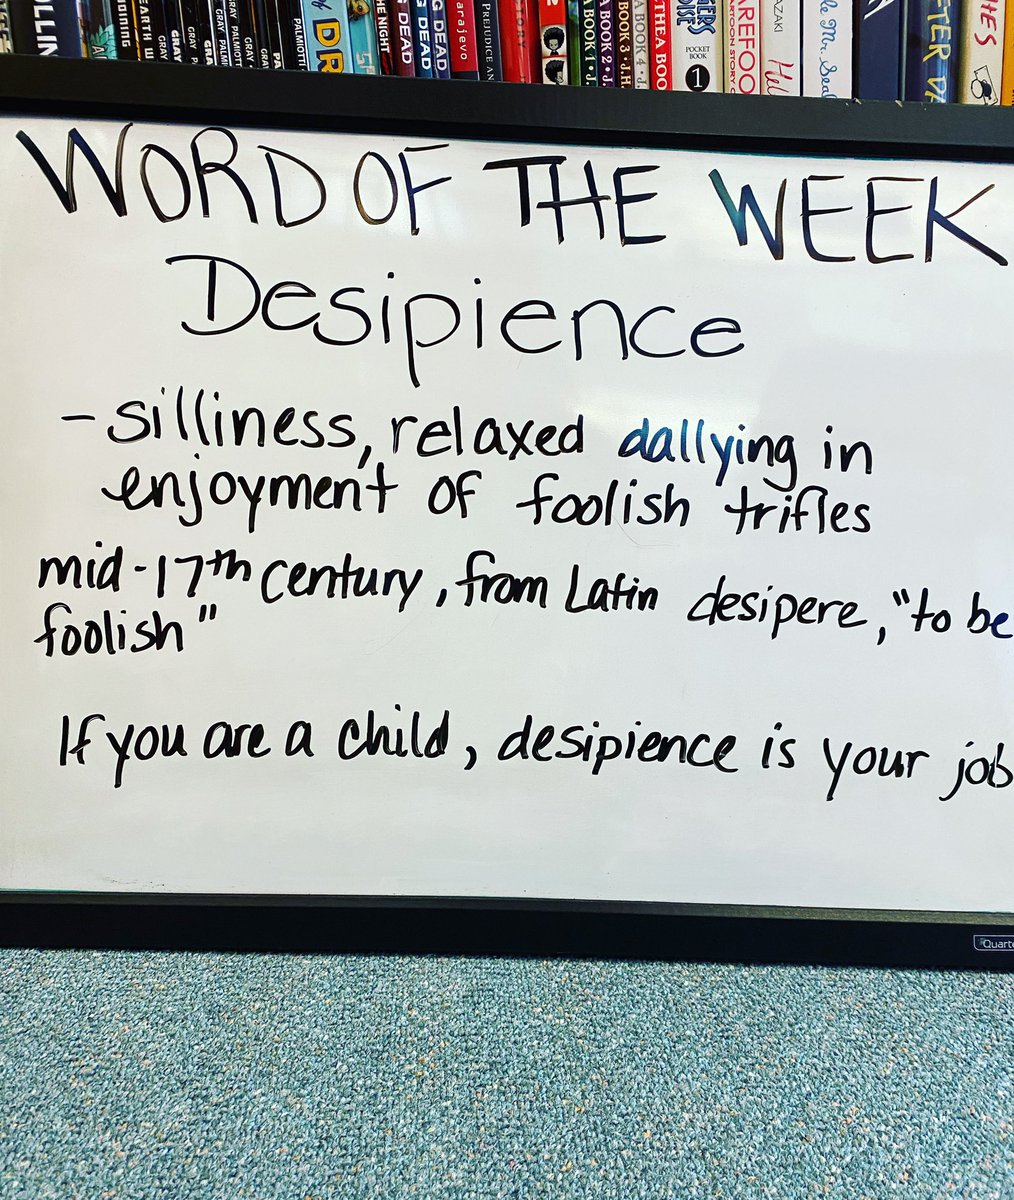 OLLIN
EARTH W
GRAY
GRAY
PALMIOTTI
DR
THE NIGHT
G DEAD
G DEAD
arajevo
PREJUDICE AN
BOOK 1
BOOK 2
BOOK 3
BOOK 4
THEA BOO
POCKET
BOOK
1
AREFOO
AZAKI
Mr. Sea
FTER DA
HE'S
WORD OF THE WEEK
Desipience
- silliness, relaxed dallying in
enjoyment of foolish trifles
mid-17th century, from Latin desipere, "to be
foolish"
If you are a child, desipience is your job
Quarte